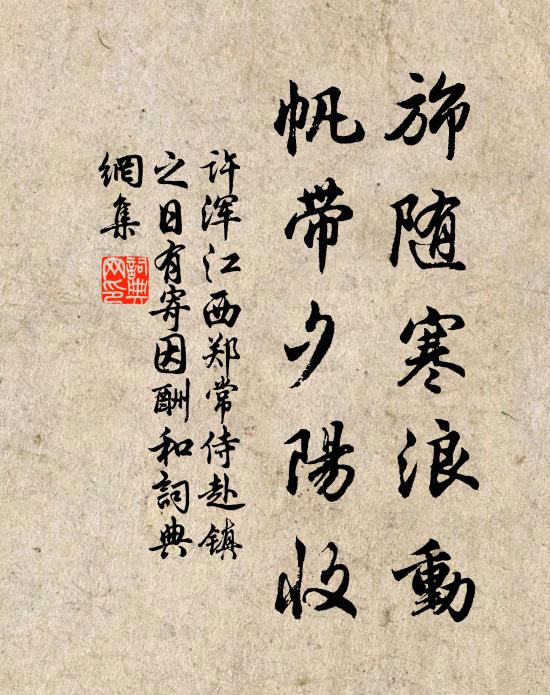 旆随寒浪動
帆带夕陽收
许浑江西郑常侍赴镇
之日有寄因酬和詞典
網集
詞典
网印